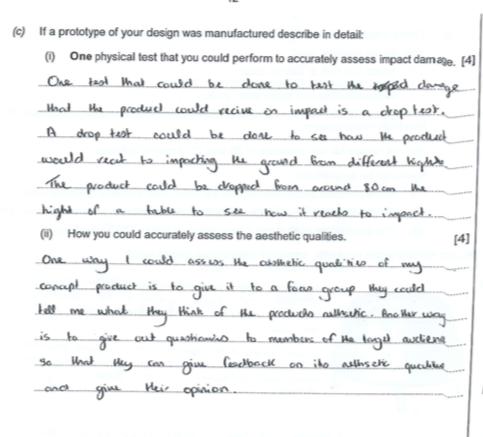 (c) If a prototype of your design was manufactured describe in detail:
(i) One physical test that you could perform to accurately assess impact damage. [4]
One test that could be done to test the damage
that the product could recive on impact is a drop test.
A drop test could be done to see how the product
would react to impacting the ground from different hights.
The product could be dropped from around 80cm the
hight of a table to see how it reacts to impact.
(ii) How you could accurately assess the aesthetic qualities. [4]
One way I could assess the qualities of my
concept product is to give it to a focus group they could
tell me what they think of the products Another way
is to give out to members of the target
so that they can give feedback on its
and give their opinion.